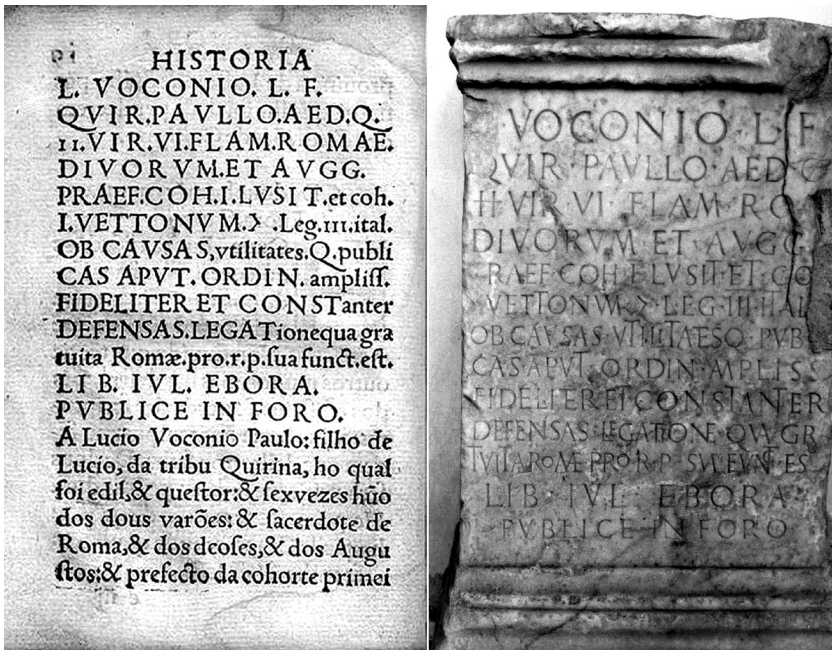 HISTORIA
L. VOCONIO. L. F.
QVIR.PAVLLO.AED.Q.
II.VIR.VI.FLAM.ROMAE.
DIVORVM.ET AVGG.
PRAEF.COH.I.LVSIT.et coh.
I.VETTONVM.> .Leg.III.ital.
OB CAVSAS,vtilitates.Q.publi
CAS APVT.ORDIN. ampliſſ.
FIDELITER ET CONSTanter
DEFENSAS.LEGATionequa gra
tuita Romæ.pro.r.p.ſua funct.eſt.
LIB. IVL. EBORA.
PVBLICE IN FORO.
A Lucio Voconio Paulo: filho de
Lucio, da tribu Quirina, ho qual
foi edil,& queſtor:& ſex vezes hũo
dos dous varões: & ſacerdote de
Roma,& dos deoſes,& dos Augu
ſtos:& prefecto da cohorte primei
VOCONIO L F
QVIR · PAVLLO · AED
II · VIR · VI · FLAM · RO
DIVORVM · ET · AVGG
RAEF COH I LVSIT · ET · CO
VETTONVM > LEG · III ITAL
OB CAVSAS VTILITATESQ · PVB
CAS APVT · ORDIN AMPLIS
FIDELITER ET CONSTANTER
DEFENSAS LEGATIONE QVA GR
LIB · IVL EBORA
PVBLICE IN FORO